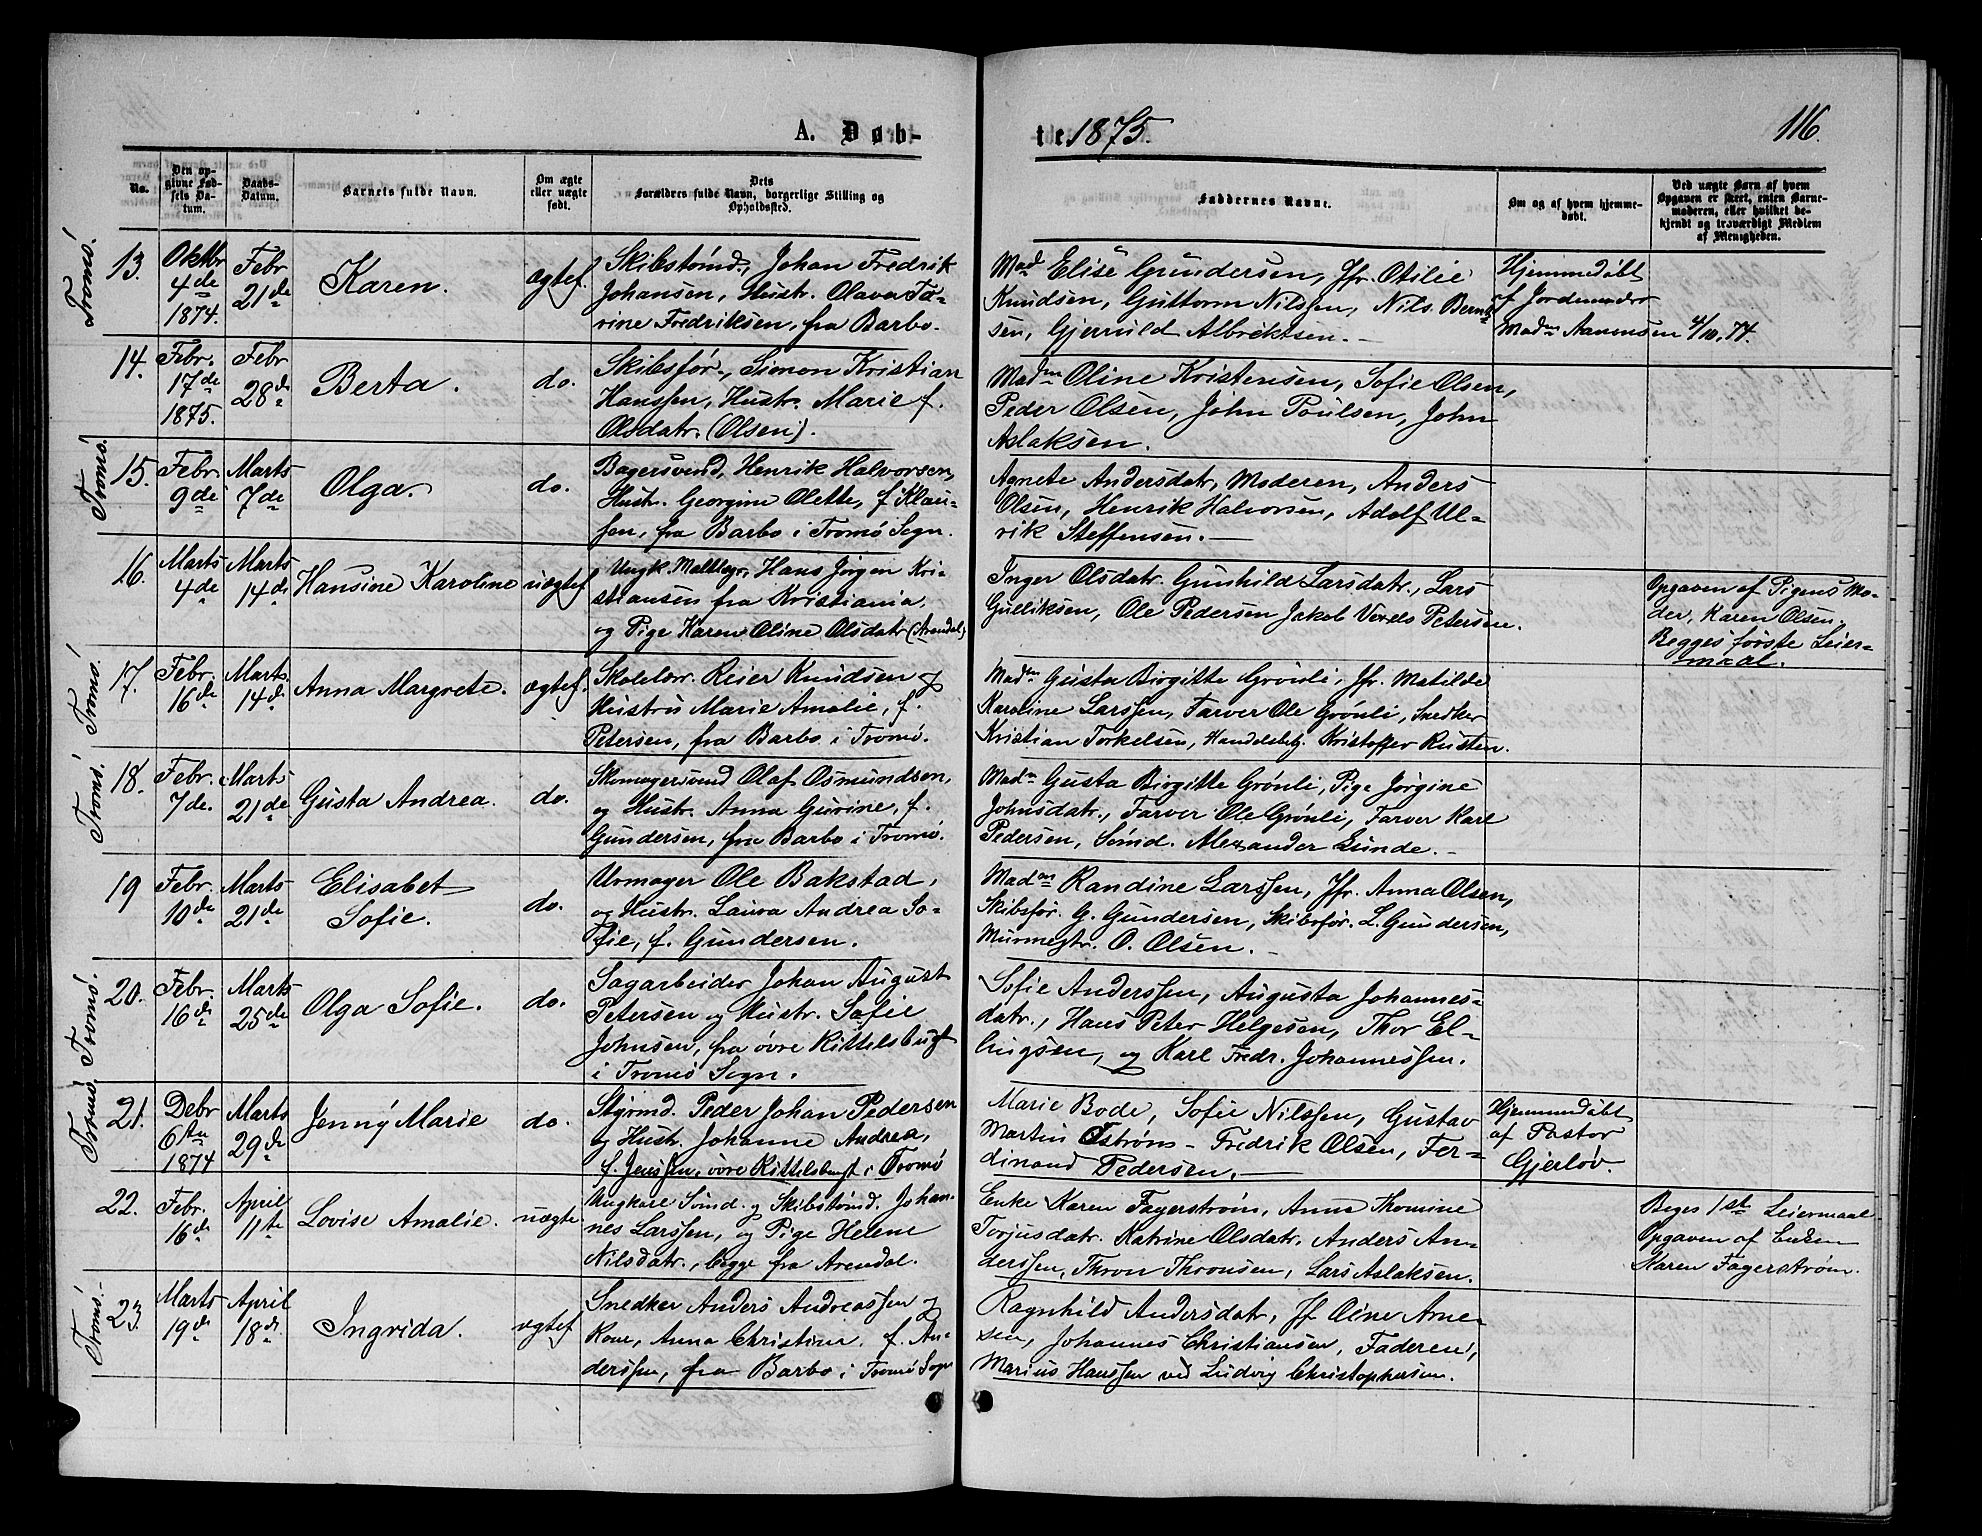 A. Døb-
te 1875.
116.
No.
Den op-
givne Fød-
sels Da-
tum.
Daabs-
Datum.
Barnets fulde Navn.
Om ægte
eller uægte
født.
Dets
Forældres fulde Navn, borgerlige Stilling og
Opholdssted.
Faddernes Navne.
Om og af hvem hjemme-
døbt.
Ved uægte Børn af hvem
Opgaven er skeet, enten Barne-
moderen, eller hvilket be-
kjendt og troværdigt Medlem
af Menigheden.
Tromö.
13.
Oktbr
4de
1874.
Febr
21de
Karen.
ægtef.
Skibstömd., Johan Fredrik
Johansen, Hustr. Olava Ta-
rine Fredriksen, fra Barbo.
Mad Elise Gundersen, Jfr. Otilie
Knudsen, Guttorm Nilssen, Nils Bernt-
sen, Gjerruld Albrektsen.
Hjemmdöbt
f Jordemoder
Madm Aanonsen 4/10. 74.
14.
Febr.
17de
1875.
Febr
28de
Berta.
do.
Skibsför., Simon Kristian
Hanssen, Hustr. Marie f.
Olsdatr. (Olsen).
Madm Oline Kristensen, Sofie Olsen,
Peder Olsen, John Poulsen, John
Aslaksen.
Tromö.
15.
Febr.
9de
Marts
7de
Olga.
do.
Bagersvend, Henrik Halvorsen,
Hustr. Georgine Olette, f Klau-
sen, fra Barbo i Tromö Sogn.
Agnete Andersdatr, Moderen, Anders
Olsen, Henrik Halvorsen, Adolf Ul-
rik Steffensen.
16.
Marts
4de
Marts
14de
Hansine Karoline
uægtef
Ungk. Maltbgr., Hans Jörgen Kri-
stiansen fra Kristiania,
og Pige Karen Oline Olsdatr (Arendal)
Inger Olsdatr. Gunhild Larsdatr., Lars
Gulliksen, Ole Pedersen Jakob Vexels Petersen.
Opgaven af Pigens Mo-
der, Karen Olsen.
Begges förste Leier-
maal.
Tromö.
17.
Febr.
16de
Marts.
14de
Anna Margrete.
ægtef.
Skolelær. Reier Knudsen og
Hustru Marie Amalie, f.
Petersen, fra Barbo i Tromö.
Madm Gusta Birgitte Grönli, Jfr. Matilde
Karoline Larssen, Farver Ole Grönli, Snedker
Kristian Torkelsen, Handelsbtj. Kristoffer Rusten.
Tromö.
18.
Febr.
7de.
Marts
21de
Gusta Andrea.
do.
Skomagersvend Olaf Osmundsen,
og Hustr. Anna Gurine, f.
Gundersen, fra Barbo i Tromö.
Madm Gusta Birgitte Grönli, Pige Jörgine
Johnsdatr., Farver Ole Grönli, Farver Karl
Pedersen, Sömd. Alexander Lunde.
19
Febr.
10de
Marts
21de
Elisabet
Sofie.
do.
Urmager Ole Bakstad,
og Hustr. Laura Andrea So-
fie, f. Gundersen.
Madm Randine Larssen, Jfr. Anna Olsen,
Skibsför. G. Gundersen, Skibsför. L. Gundersen,
Murmestr. O. Olsen.
Tromö.
20.
Febr.
16de
Marts
25de
Olga Sofie.
do.
Sagarbeider Johan August
Petersen og Hustr. Sofie
Johnsen, fra övre Kittelsbugt
i Tromö Sogn.
Sofie Anderssen, Augusta Johannes-
datr., Hans Peter Helgesen, Thor El-
lingsen, og Karl Fredr. Johannessen.
Tromö.
21.
Debr
6te
1874
Marts
29de
Jenny Marie
do.
Styrmd. Peder Johan Pedersen
og Hustr. Johanne Andrea,
f. Jenssen, övre Kittelsbugt i Tromö
Marie Bode, Sofie Nilssen, Gustav
Martin Öström - Fredrik Olsen, Fer-
dinand Pedersen.
Hjemmdöbt
af Pastor
Gjerlöv.
22.
Febr.
16de
April
11te
Lovise Amalie.
uægte
Ungkarl Sömd. og Skibstömd. Johan-
nes Larssen, og Pige Helene
Nilsdatr., begge fra Arendal.
Enke Karen Fagerström, Anna Thomine
Torjusdatr. Katrine Olsdatr, Anders An-
derssen, Thron Thronsen, Lars Aslaksen.
Beges 1ste Leiermaal
Opgaven af Enken
Karen Fagerström.
Tromö.
23.
Marts
19de
April
18de.
Ingrida.
ægtef
Snedker Anders Andreassen og
Kone, Anna Christine f. An-
derssen, fra Barbo i Tromö Sogn
Ragnhild Andersdatr, Jf Oline Arne-
sen, Johannes Christiansen, Faderen,
Marius Hanssen ved Ludvig Christophersen.